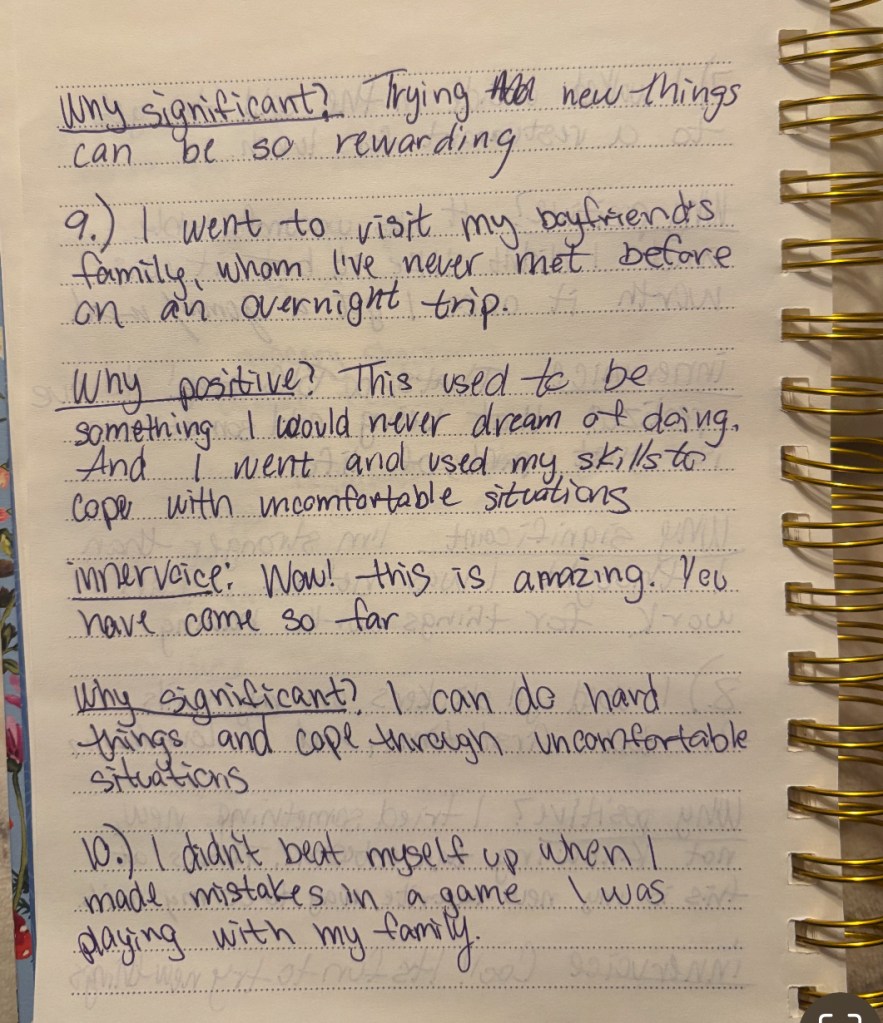 Why significant? Trying new things
can be so rewarding
9.) I went to visit my boyfriend's
family, whom I've never met before
on an overnight trip.
Why positive? This used to be
something I would never dream of doing.
And I went and used my skills to
cope with uncomfortable situations
innervoice: Wow! this is amazing. You
have come so far
Why significant? I can do hard
things and cope through uncomfortable
situations
10.) I didn't beat myself up when I
made mistakes in a game I was
playing with my family.